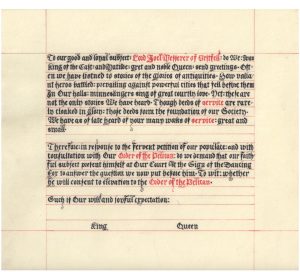 To our good and loyal subject: Lord Jock of Veitch: do We: Ivar
King of the East: and Matilde: gret and noble Queen: send greetings. Oft
en we have listned to stories of the glories of antiquities. How valia
nt heros battled: prevailing against powerful cities that fell before them
In Our halls: minnesangers sing of great courtly love. Yet these are
not the only stories We have heard. Though deeds of service are rare
ly cloaked in glory: those deeds form the foundation of our Society.
We have as of late heard of your many works of service: great and
small.
Therefore: in response to the fervent petition of our populace: and with
conjunction with Our Order of the Pelican: do we demand that our faith
ful subject present himself at Our Court at the Sign of the Dancing
Fox to answer the question we now put before him. To wit: whether
he will consent to elevation to the Order of the Pelican.
Such is Our will and joyful expectation:
King Queen